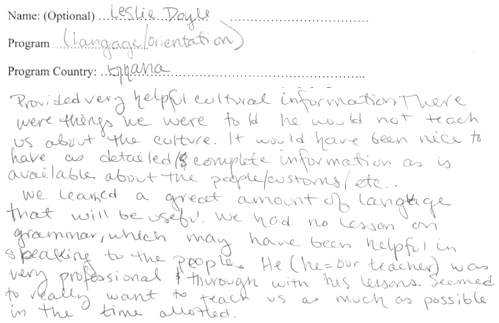 Name: (Optional) Leslie Doyle
Program (Langage/orientation)
Program Country: Ghana
Provided very helpful cultural information There
were things we were told he would not teach
us about the culture. It would have been nice to
have as detailed/& complete information as is
available about the people/customs/etc..
we learned a great amount of language
that will be useful. We had no lesson on
grammar, which may have been helpful in
speaking to the people. He (he=our teacher) was
very professional & through with his lessons. Seemed
to really want to teach us as much as possible
in the time allotted.